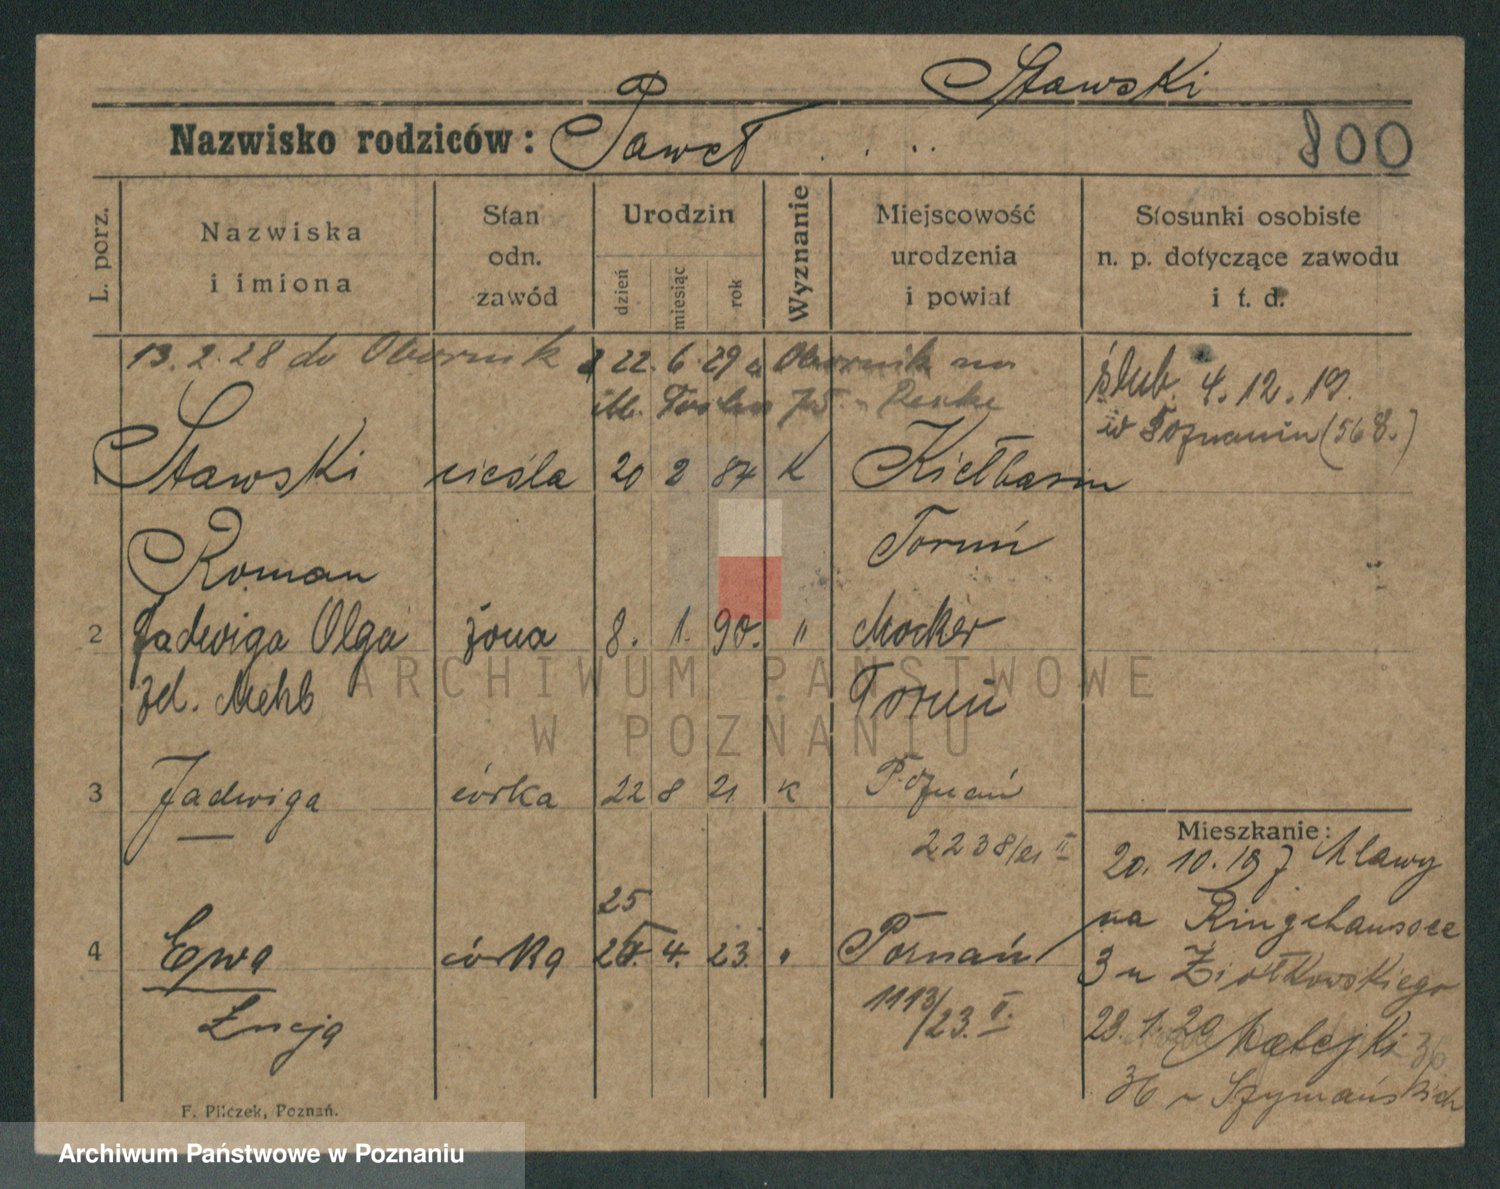 Stawski
Nazwisko rodziców: Paweł . . . . 800
L. porz.
Nazwiska i imiona
Stan odn. zawód
Urodzin
dzień miesiąc rok
Wyznanie
Miejscowość urodzenia i powiat
Stosunki osobiste n. p. dotyczące zawodu i t. d.
13.2.28 do Obornik 22.6.29 z Obornik na
ślub. 4.12.19.
w Poznaniu (568.)
1 Stawski cieśla 20 2 84 K Kiełbasin
Roman Toruń
2 Jadwiga Olga żona 8. 1. 90. " Mocker
zd. Mehl Toruń
3 Jadwiga córka 22 8 21 K Poznań
2238/21 II
25
4 Ewa córka 4. 23. " Poznań
Łucja 1113/23. II.
Mieszkanie:
20.10.19 z Mławy
na Ringchaussee
3 u Ziołkowskiego
23.1.20 Matejki 36
36 u Szymańskich
F. Pilczek, Poznań.
ARCHIWUM PAŃSTWOWE
W POZNANIU
Archiwum Państwowe w Poznaniu